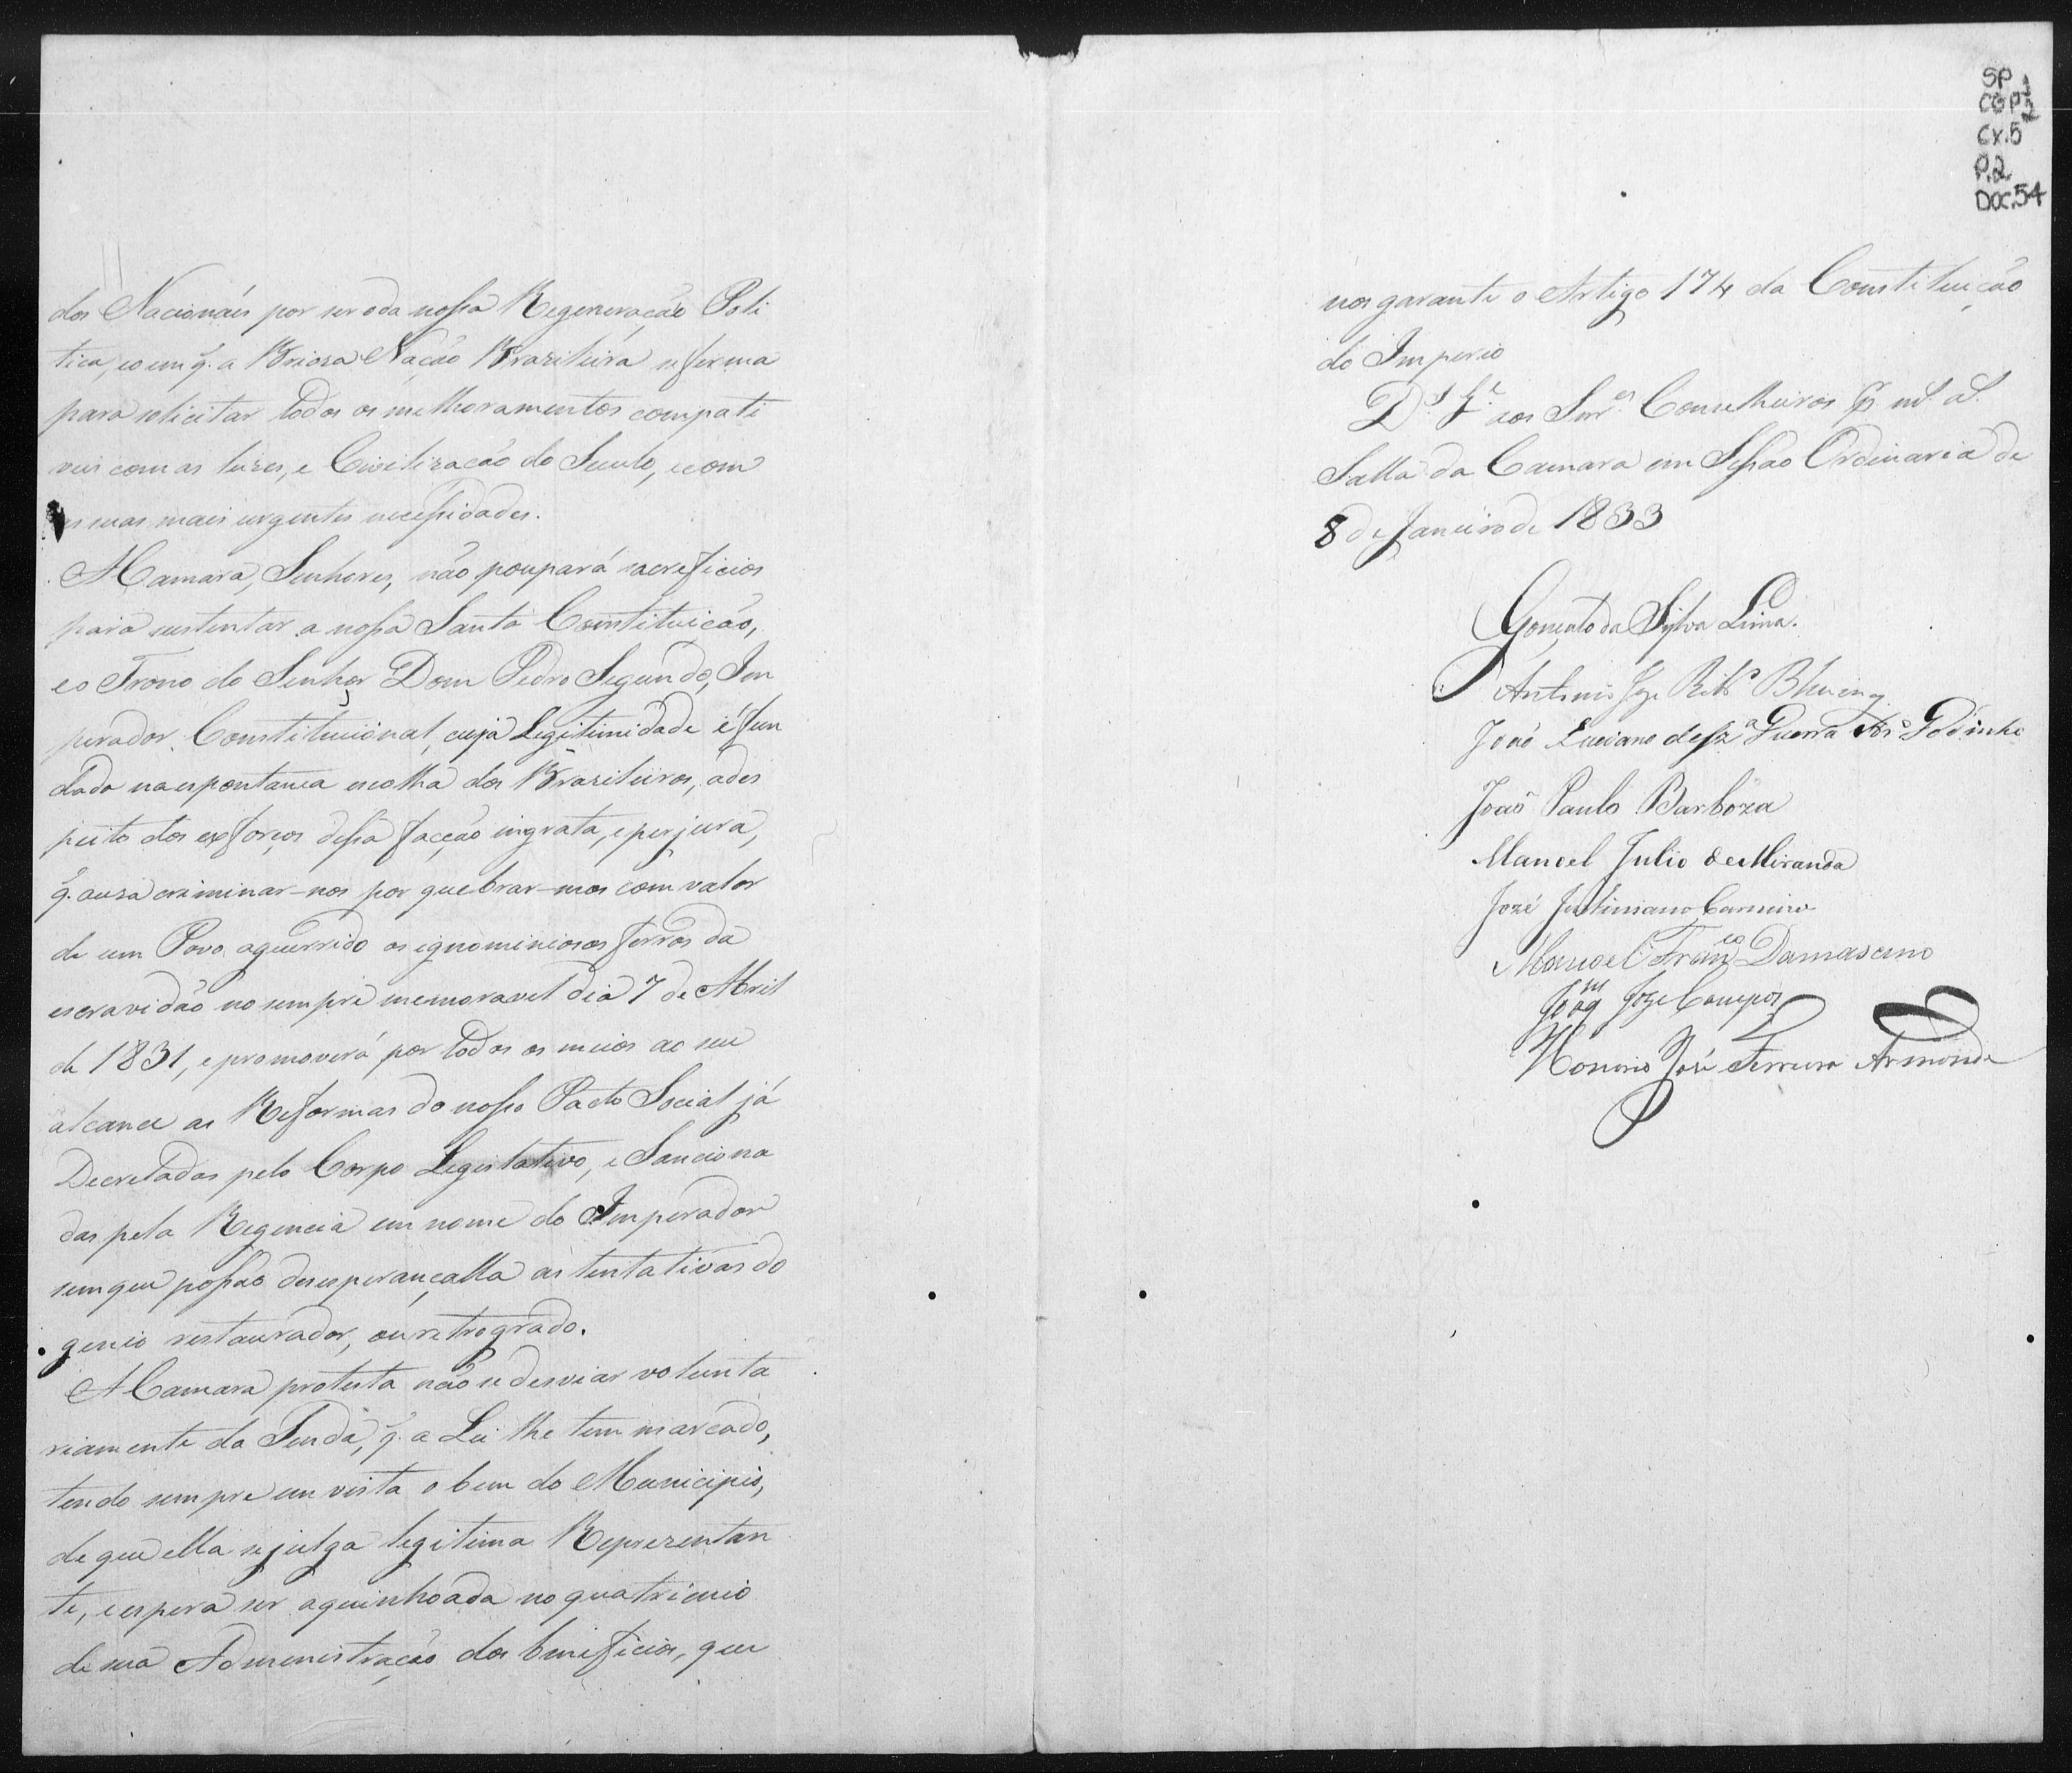 dos Nacionáes por ser o da nossa Regeneração Poli
tica, e o em q. a Brioza Nação Brazileira se firma
para solicitar todos os melhoramentos compati
veis com as luzes, e Civilização do Seculo, e com
as suas mais urgentes necessidades.
A Camara, Senhores, não poupará sacreficios
para sustentar a nossa Santa Constituição,
e o Trono do Senhor Dom Pedro Segundo, Im
perador Constitucional, cuja Legitimidade é fun
dada na espontanea escolha dos Brazileiros, a des
peito dos exforços dessa facção ingrata, e perjura,
q. ousa criminar-nos por quebrar-mos com valor
de um Povo aguerrido os ignominiosos ferros da
escravidão no sempre memoravel dia 7 de Abril
de 1831, e promoverá por todos os meios ao seu
alcance as Reformas do nosso Pacto Social já
Decretadas pelo Corpo Legislativo, e Sanciona
das pela Regencia em nome do Imperador
sem que possão desesperançalla as tentativas do
genio restaurador, ou retrogrado.
A Camara protesta não se desviar volunta
riamente da Senda, q. a Lei lhe tem marcado,
tendo sempre em vista o bem do Municipio,
de que ella se julga legitima Reprezentan
te, e espera ser aquinhoada no quatrienio
de sua Administração dos beneficios, que
SP 1
CGP 2
CX.5
P.2
DOC.54
nos garante o Artigo 174 da Constituição
do Imperio
D.s G.e aos Snr.es Conselheiros p. m.s a.s
Salla da Camara em Sessão Ordinaria de
8 de Janeiro de 1833
Gonçalo da Sylva Lima.
Antonio Joze Rib.o Bhering
João Luciano de Sz.a Guerra Godinho
João Paulo Barboza
Manoel Julio de Miranda
Jozé Justiniano Carneiro
Manoel Fran.co Damasceno
Joaq.m Joze Campos
Honorio José Ferreira Armonde